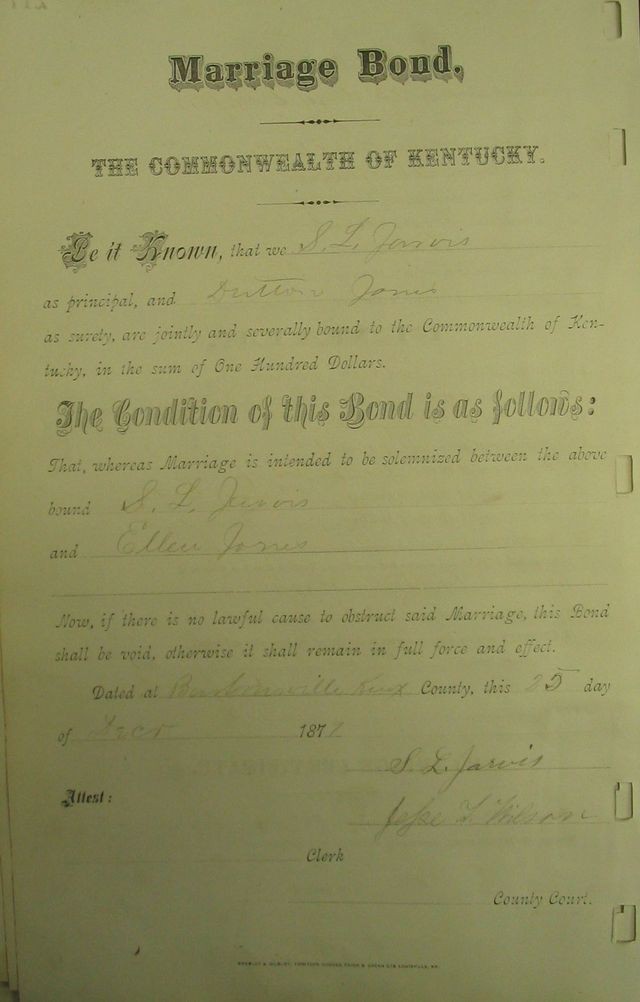 Marriage Bond.
THE COMMONWEALTH OF KENTUCKY.
Be it Known, that we S. L. Jarvis
as principal, and Dutton Jones
as surety, are jointly and severally bound to the Commonwealth of Ken-
tucky, in the sum of One Hundred Dollars.
The Condition of this Bond is as follows:
That, whereas Marriage is intended to be solemnized between the above
bound S. L. Jarvis
and Ellen Jones
Now, if there is no lawful cause to obstruct said Marriage, this Bond
shall be void, otherwise it shall remain in full force and effect.
Dated at Barboursville Knox County, this 25 day
of Decr 1871
S. L. Jarvis
Attest:
Jesse L Wilson
Clerk
County Court.